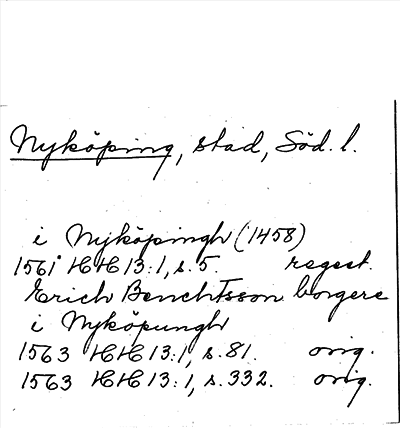 Nyköping, stad, Söd. l.
i Nyköpingh (1458)
1561 HH 13:1, s. 5. regest.
Erich Benchtsson borgere
i Nyköpungh
1563 HH 13:1, s. 81. orig.
1563 HH 13:1, s. 332. orig.